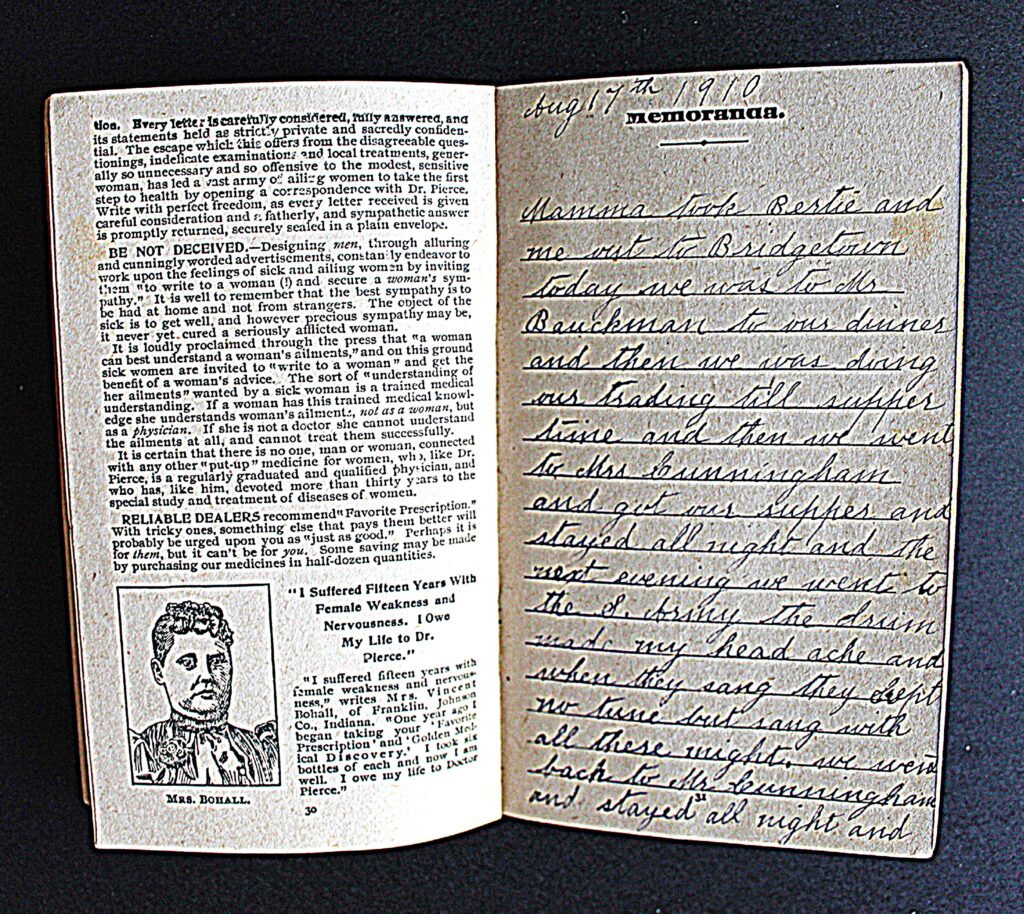 tion. Every letter is carefully considered, fully answered, and
its statements held as strictly private and sacredly confiden-
tial. The escape which this offers from the disagreeable ques-
tionings, indelicate examinations and local treatments, gener-
ally so unnecessary and so offensive to the modest, sensitive
woman, has led a vast army of ailing women to take the first
step to health by opening a correspondence with Dr. Pierce.
Write with perfect freedom, as every letter received is given
careful consideration and a fatherly, and sympathetic answer
is promptly returned, securely sealed in a plain envelope.
BE NOT DECEIVED.—Designing men, through alluring
and cunningly worded advertisements, constantly endeavor to
work upon the feelings of sick and ailing women by inviting
them "to write to a woman (!) and secure a woman's sym-
pathy." It is well to remember that the best sympathy is to
be had at home and not from strangers. The object of the
sick is to get well, and however precious sympathy may be,
it never yet cured a seriously afflicted woman.
It is loudly proclaimed through the press that "a woman
can best understand a woman's ailments," and on this ground
sick women are invited to "write to a woman" and get the
benefit of a woman's advice. The sort of "understanding of
her ailments" wanted by a sick woman is a trained medical
understanding. If a woman has this trained medical knowl-
edge she understands woman's ailments, not as a woman, but
as a physician. If she is not a doctor she cannot understand
the ailments at all, and cannot treat them successfully.
It is certain that there is no one, man or woman, connected
with any other "put-up" medicine for women, who, like Dr.
Pierce, is a regularly graduated and qualified physician, and
who has, like him, devoted more than thirty years to the
special study and treatment of diseases of women.
RELIABLE DEALERS recommend "Favorite Prescription."
With tricky ones, something else that pays them better will
probably be urged upon you as "just as good." Perhaps it is
for them, but it can't be for you. Some saving may be made
by purchasing our medicines in half-dozen quantities.
"I Suffered Fifteen Years With
Female Weakness and
Nervousness. I Owe
My Life to Dr.
Pierce."
"I suffered fifteen years with
female weakness and nervous-
ness," writes Mrs. Vincent
Bohall, of Franklin, Johnson
Co., Indiana. "One year ago I
began taking your 'Favorite
Prescription' and 'Golden Med-
ical Discovery.' I took six
bottles of each and now I am
well. I owe my life to Doctor
Pierce."
MRS. BOHALL.
30
Aug 17th 1910
Memoranda.
Mamma took Bertie and
me out to Bridgetown
today we was to Mr
Bauckman to our dinner
and then we was doing
our trading till supper
time and then we went
to Mrs Cunningham
and got our supper and
stayed all night and the
next evening we went to
the S. Army the drum
made my head ache and
when they sang they kept
no tune but sang with
all there might. we went
back to Mr Cunningham
and stayed all night and
31